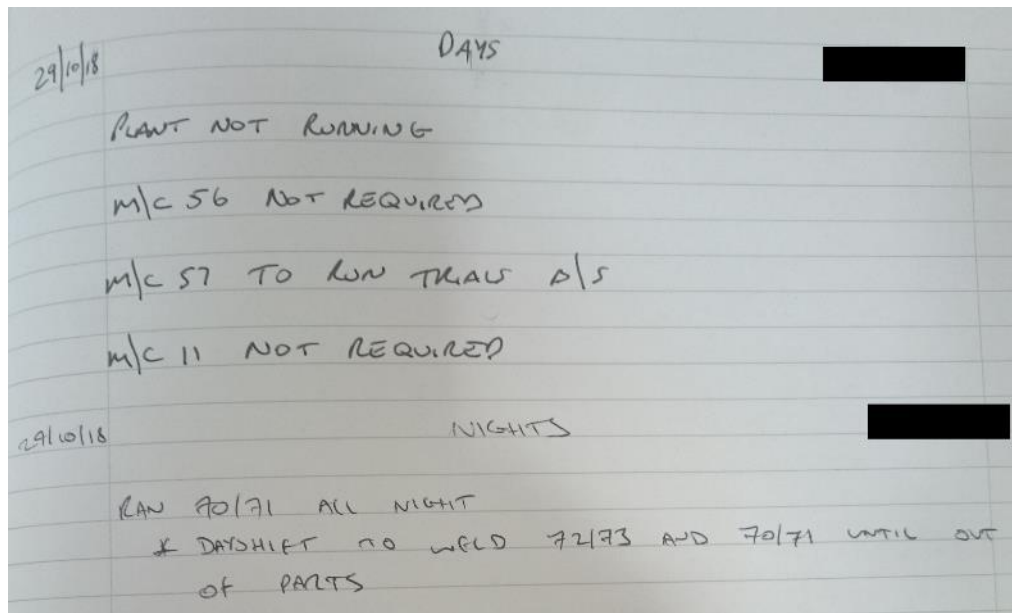 DAYS
29/10/18
PLANT NOT RUNNING
M/C 56 NOT REQUIRED
M/C 57 TO RUN TRIALS D/S
M/C 11 NOT REQUIRED
29/10/18 NIGHTS
RAN 70/71 ALL NIGHT
* DAYSHIFT TO WELD 72/73 AND 70/71 UNTIL OUT
OF PARTS